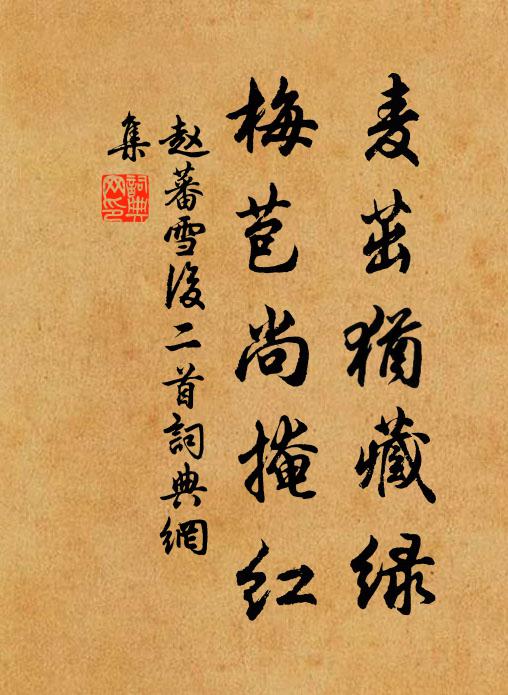 麦茁犹藏绿
梅苞尚掩红
赵蕃雪后二首詞典網
集
詞典网印